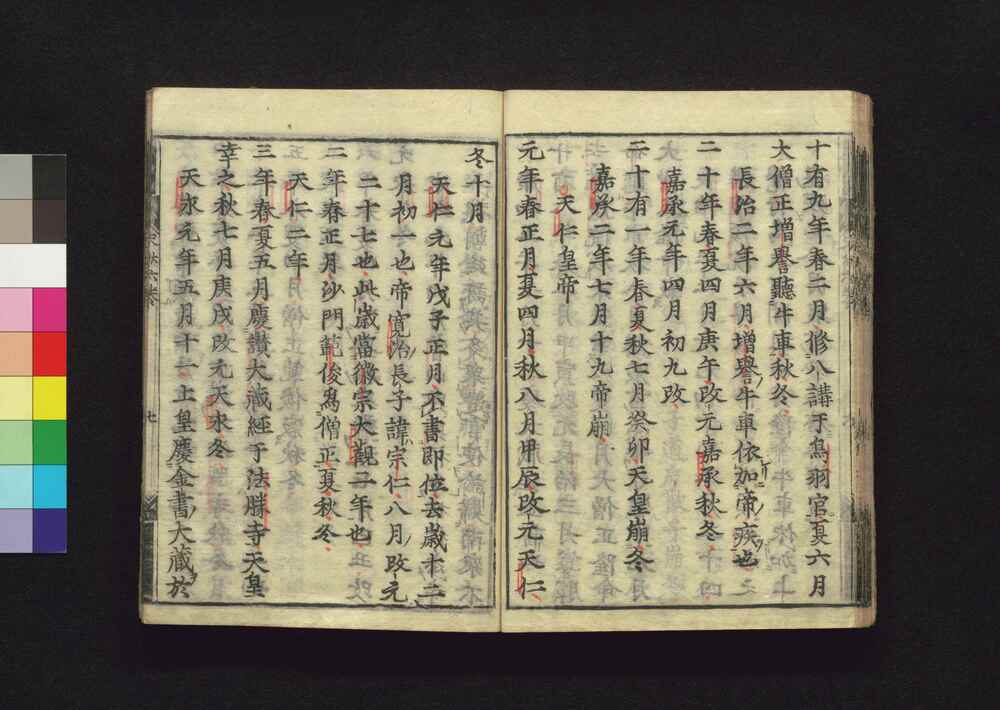 十有九年春二月修八講于鳥羽官夏六月
大僧正增譽聽牛車秋冬
長治二年六月增譽牛車依加帝疾也
二十年春夏四月庚午改元嘉承秋冬
嘉承元年四月初九改
二十有一年春夏秋七月癸卯天皇崩冬
嘉承二年七月十九帝崩
天仁皇帝
元年春正月夏四月秋八月甲辰改元天仁
冬十月
天仁元年戊子正月不書即位去歲十二
月初一也帝寬治長子諱宗仁八月改元
二十七也此歲當徽宗大觀二年也
二年春正月沙門範俊爲僧正夏秋冬
天仁二年
三年春夏五月慶讚大藏經于法勝寺天皇
幸之秋七月庚戌改元天永冬
天永元年五月十一上皇慶金書大藏於
七